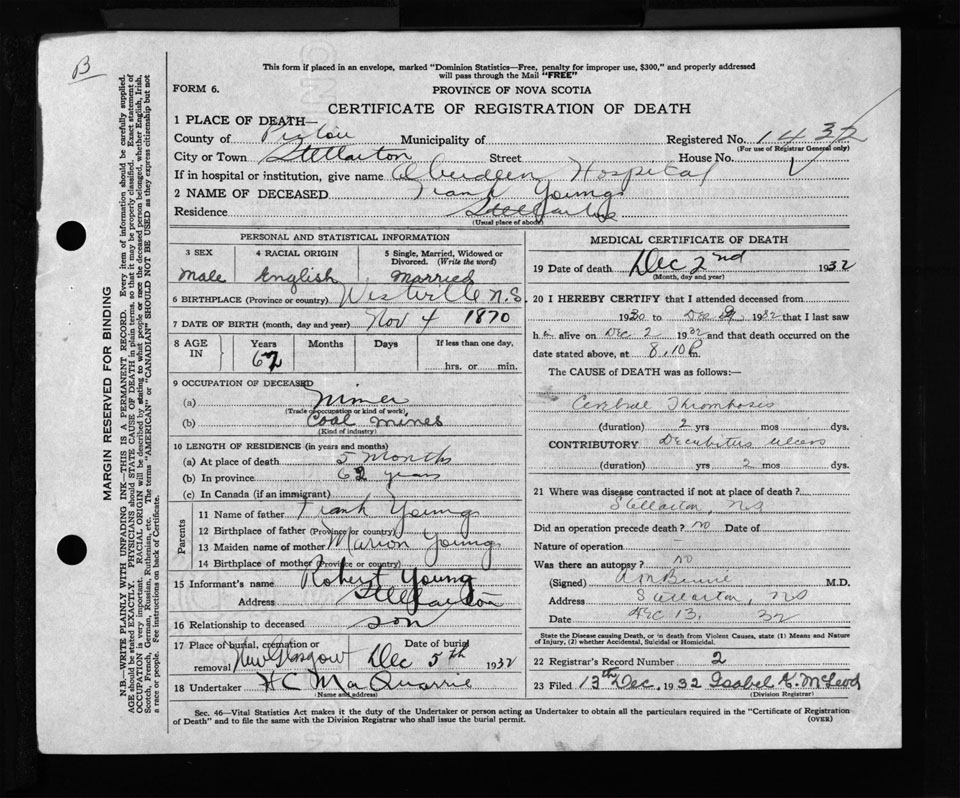 B
This form if placed in an envelope, marked "Dominion Statistics—Free, penalty for improper use, $300," and properly addressed
will pass through the Mail "FREE"
FORM 6.
PROVINCE OF NOVA SCOTIA
CERTIFICATE OF REGISTRATION OF DEATH
1 PLACE OF DEATH—
County of Pictou Municipality of Registered No. 1432
(For use of Registrar General only)
City or Town Stellarton Street House No.
If in hospital or institution, give name Aberdeen Hospital
2 NAME OF DECEASED Frank Young
Residence Stellarton
(Usual place of abode)
PERSONAL AND STATISTICAL INFORMATION
3 SEX 4 RACIAL ORIGIN 5 Single, Married, Widowed or Divorced. (Write the word)
Male English Married
6 BIRTHPLACE (Province or country) Westville N.S.
7 DATE OF BIRTH (month, day and year) Nov 4 1870
8 AGE IN Years Months Days If less than one day,
62 hrs. or min.
9 OCCUPATION OF DECEASED
(a) Miner
(Trade occupation or kind of work)
(b) Coal mines
(Kind of industry)
10 LENGTH OF RESIDENCE (in years and months)
(a) At place of death 5 Months
(b) In province 62 years
(c) In Canada (if an immigrant)
Parents
11 Name of father Frank Young
12 Birthplace of father (Province or country)
13 Maiden name of mother Marion Young
14 Birthplace of mother (Province or country)
15 Informant's name Robert Young
Address Stellarton
16 Relationship to deceased son
17 Place of burial, cremation or removal New Glasgow Date of burial Dec 5th 1932
18 Undertaker H C MacQuarrie
(Name and address)
MEDICAL CERTIFICATE OF DEATH
19 Date of death Dec 2nd 1932
(Month, day and year)
20 I HEREBY CERTIFY that I attended deceased from
1930 to Dec 1932 that I last saw
h alive on Dec 2 1932 and that death occurred on the
date stated above, at 8.10 P m.
The CAUSE of DEATH was as follows:—
Cerebral Thrombosis
(duration) 2 yrs mos dys.
CONTRIBUTORY Decubitus ulcers
(duration) yrs 2 mos dys.
21 Where was disease contracted if not at place of death?
Stellarton, NS
Did an operation precede death? no Date of
Nature of operation —
Was there an autopsy? no
(Signed) M.D.
Address Stellarton, NS
Date Dec 13. 32
State the Disease causing Death, or in death from Violent Causes, state (1) Means and Nature
of Injury, (2) whether Accidental, Suicidal or Homicidal.
22 Registrar's Record Number 2
23 Filed 13th Dec. 1932 Isabel K. McLeod
(Division Registrar)
Sec. 46—Vital Statistics Act makes it the duty of the Undertaker or person acting as Undertaker to obtain all the particulars required in the "Certificate of Registration
of Death" and to file the same with the Division Registrar who shall issue the burial permit.
(OVER)
MARGIN RESERVED FOR BINDING
N.B.—WRITE PLAINLY WITH UNFADING INK—THIS IS A PERMANENT RECORD. Every item of information should be carefully supplied.
AGE should be stated EXACTLY. PHYSICIANS should STATE CAUSE OF DEATH in plain terms, so that it may be properly classified. Exact statement of
OCCUPATION is very important. RACIAL ORIGIN will be described by stating to what people or race the deceased person belonged, whether English, Irish,
Scotch, French, German, Russian, Ruthenian, etc. The terms "AMERICAN" or "CANADIAN" SHOULD NOT BE USED as they express citizenship but not
a race or people. See instructions on back of Certificate.